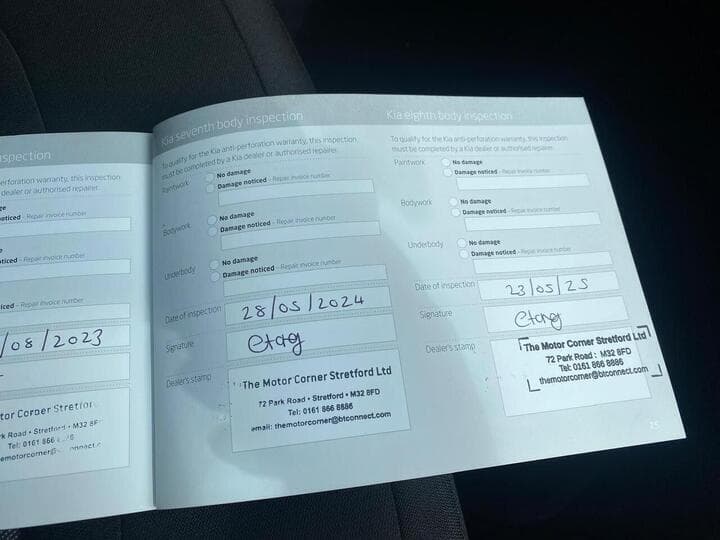 spection
erforation warranty, this inspection
dealer or authorised repairer.
ge
oticed - Repair invoice number
e
oticed - Repair invoice number
iced - Repair invoice number
/08/2023
tor Corner Stretfor
rk Road • Stretford • M32 8F
Tel: 0161 866
emotorcorner@ nnect.c
Kia seventh body inspection
To qualify for the Kia anti-perforation warranty, this inspection
must be completed by a Kia dealer or authorised repairer.
Paintwork
No damage
Damage noticed - Repair invoice number
Bodywork
No damage
Damage noticed - Repair invoice number
Underbody
No damage
Damage noticed - Repair invoice number
Date of inspection 28/05/2024
Signature
Dealer's stamp
The Motor Corner Stretford Ltd
72 Park Road • Stretford • M32 8FD
Tel: 0161 866 8886
email: themotorcorner@btconnect.com
Kia eighth body inspection
To qualify for the Kia anti-perforation warranty, this inspection
must be completed by a Kia dealer or authorised repairer.
Paintwork
No damage
Damage noticed - Repair invoice number
Bodywork
No damage
Damage noticed - Repair invoice number
Underbody
No damage
Damage noticed - Repair invoice number
Date of inspection 23/05/25
Signature
Dealer's stamp
The Motor Corner Stretford Ltd
72 Park Road : M32 8FD
Tel: 0161 866 8886
themotorcorner@btconnect.com
25